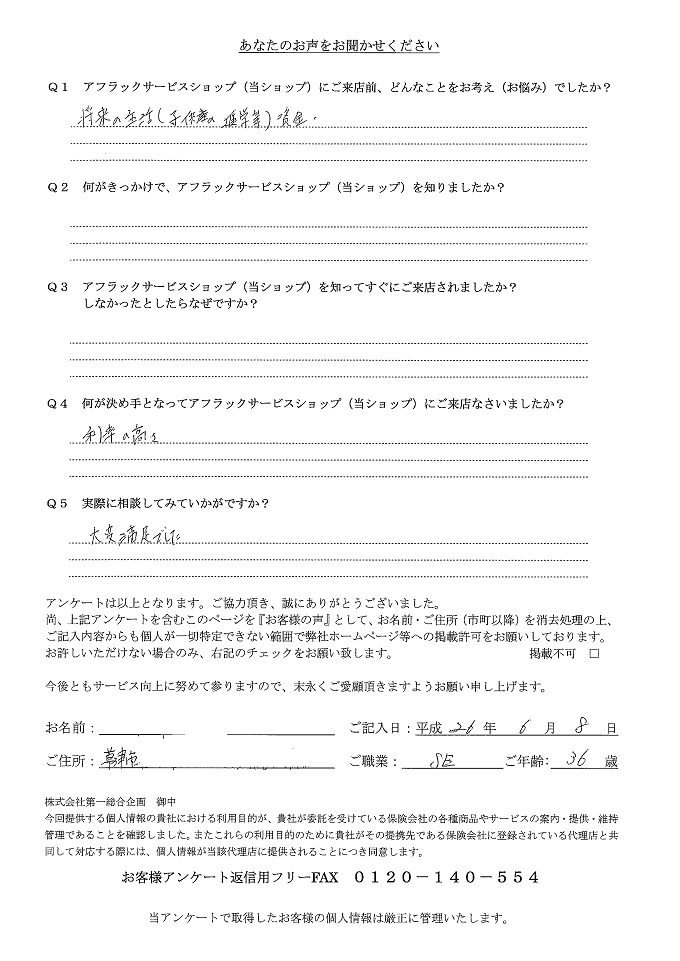 あなたのお声をお聞かせください
Q1 アフラックサービスショップ（当ショップ）にご来店前、どんなことをお考え（お悩み）でしたか？
将来の生活(子供達の進学等)資金.
Q2 何がきっかけで、アフラックサービスショップ（当ショップ）を知りましたか？
Q3 アフラックサービスショップ（当ショップ）を知ってすぐにご来店されましたか？
しなかったとしたらなぜですか？
Q4 何が決め手となってアフラックサービスショップ（当ショップ）にご来店なさいましたか？
利率の高さ
Q5 実際に相談してみていかがですか？
大変満足でした
アンケートは以上となります。ご協力頂き、誠にありがとうございました。
尚、上記アンケートを含むこのページを『お客様の声』として、お名前・ご住所（市町以降）を消去処理の上、
ご記入内容からも個人が一切特定できない範囲で弊社ホームページ等への掲載許可をお願いしております。
お許しいただけない場合のみ、右記のチェックをお願い致します。 掲載不可 □
今後ともサービス向上に努めて参りますので、末永くご愛顧頂きますようお願い申し上げます。
お名前： ご記入日：平成 26 年 6 月 8 日
ご住所： ご職業： SE ご年齢： 36 歳
株式会社第一総合企画 御中
今回提供する個人情報の貴社における利用目的が、貴社が委託を受けている保険会社の各種商品やサービスの案内・提供・維持
管理であることを確認しました。またこれらの利用目的のために貴社がその提携先である保険会社に登録されている代理店と共
同して対応する際には、個人情報が当該代理店に提供されることにつき同意します。
お客様アンケート返信用フリーFAX 0120－140－554
当アンケートで取得したお客様の個人情報は厳正に管理いたします。